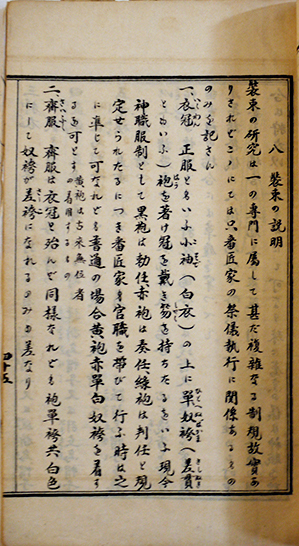 八 裝束の説明
裝束の研究は一の専門に属して甚だ複雑なる制規故實あ
りされどこゝにては只番匠家の祭儀執行に関係あるもの
のみを記さん
一、衣冠 正服ともいふ小袖(白衣)の上に單奴袴(差貫
ともいふ)袍を著け冠を戴き笏を持ちたるをいふ現今
神職服制として黒袍は勅任赤袍は奏任緑袍は判任と現
定せられたるにつき番匠家も官職を帯びて行ふ時は之
に準じて可なれども普通の場合黄袍赤單白奴袴を着す
るを可とす
黄袍は古来無位の着用するもの
者
二、齊服 齊服は衣冠と殆んど同様なれども袍單袴共白色
にして奴袴が差袴になれるのみの差なり
四十五